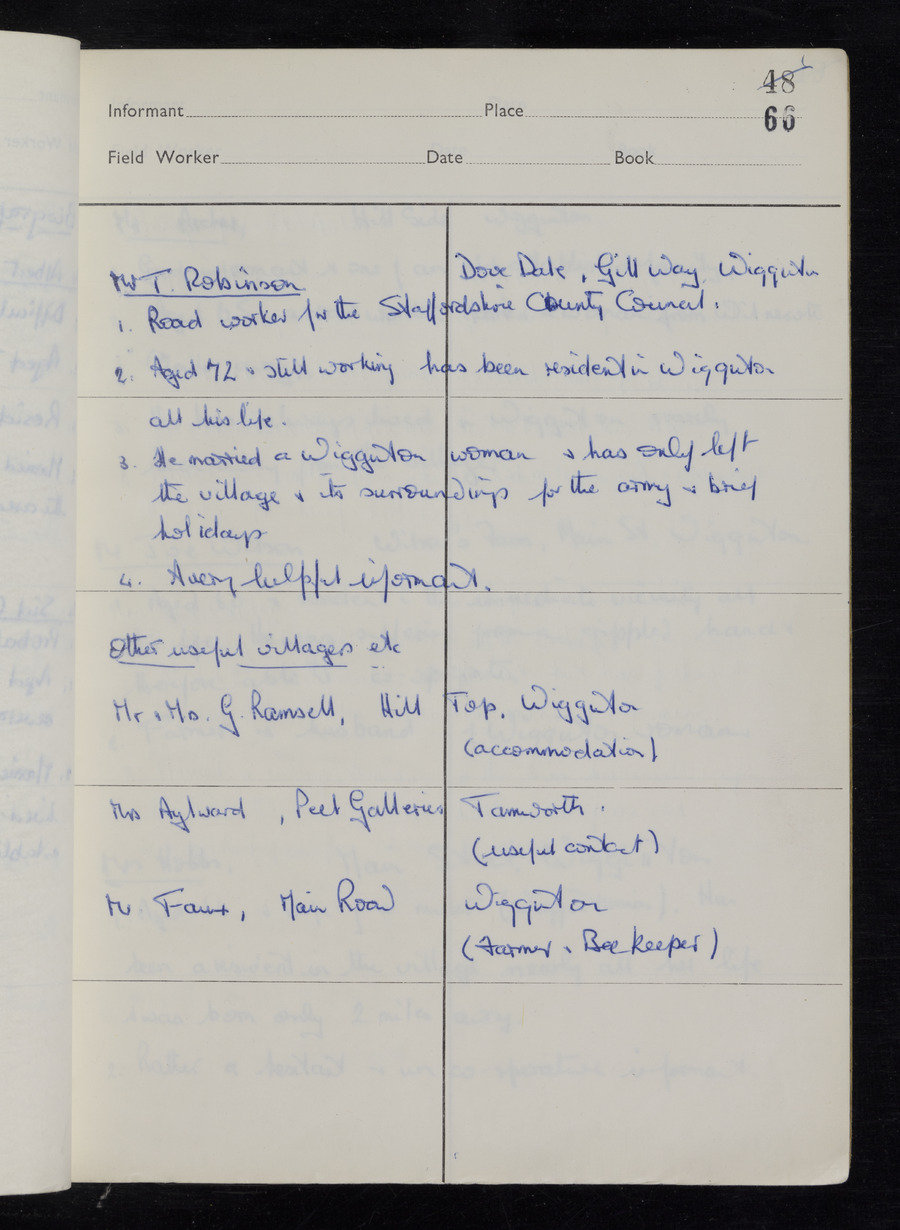 48
Informant Place
66
Field Worker Date Book
Mr T. Robinson Dove Dale, Gill Way, Wigginton
1. Road worker for the Staffordshire County Council.
2. Aged 72 & still working has been resident in Wigginton
all his life.
3. He married a Wigginton woman & has only left
the village & its surroundings for the army & brief
holidays
4. A very helpful informant.
Other useful villagers etc
Mr & Mrs. G. Ramsell, Hill Top, Wigginton
(accommodation)
Mrs Aylward, Peel Galleries Tamworth.
(useful contact)
Mr Faux, Main Road Wigginton
(Farmer & Bee keeper)